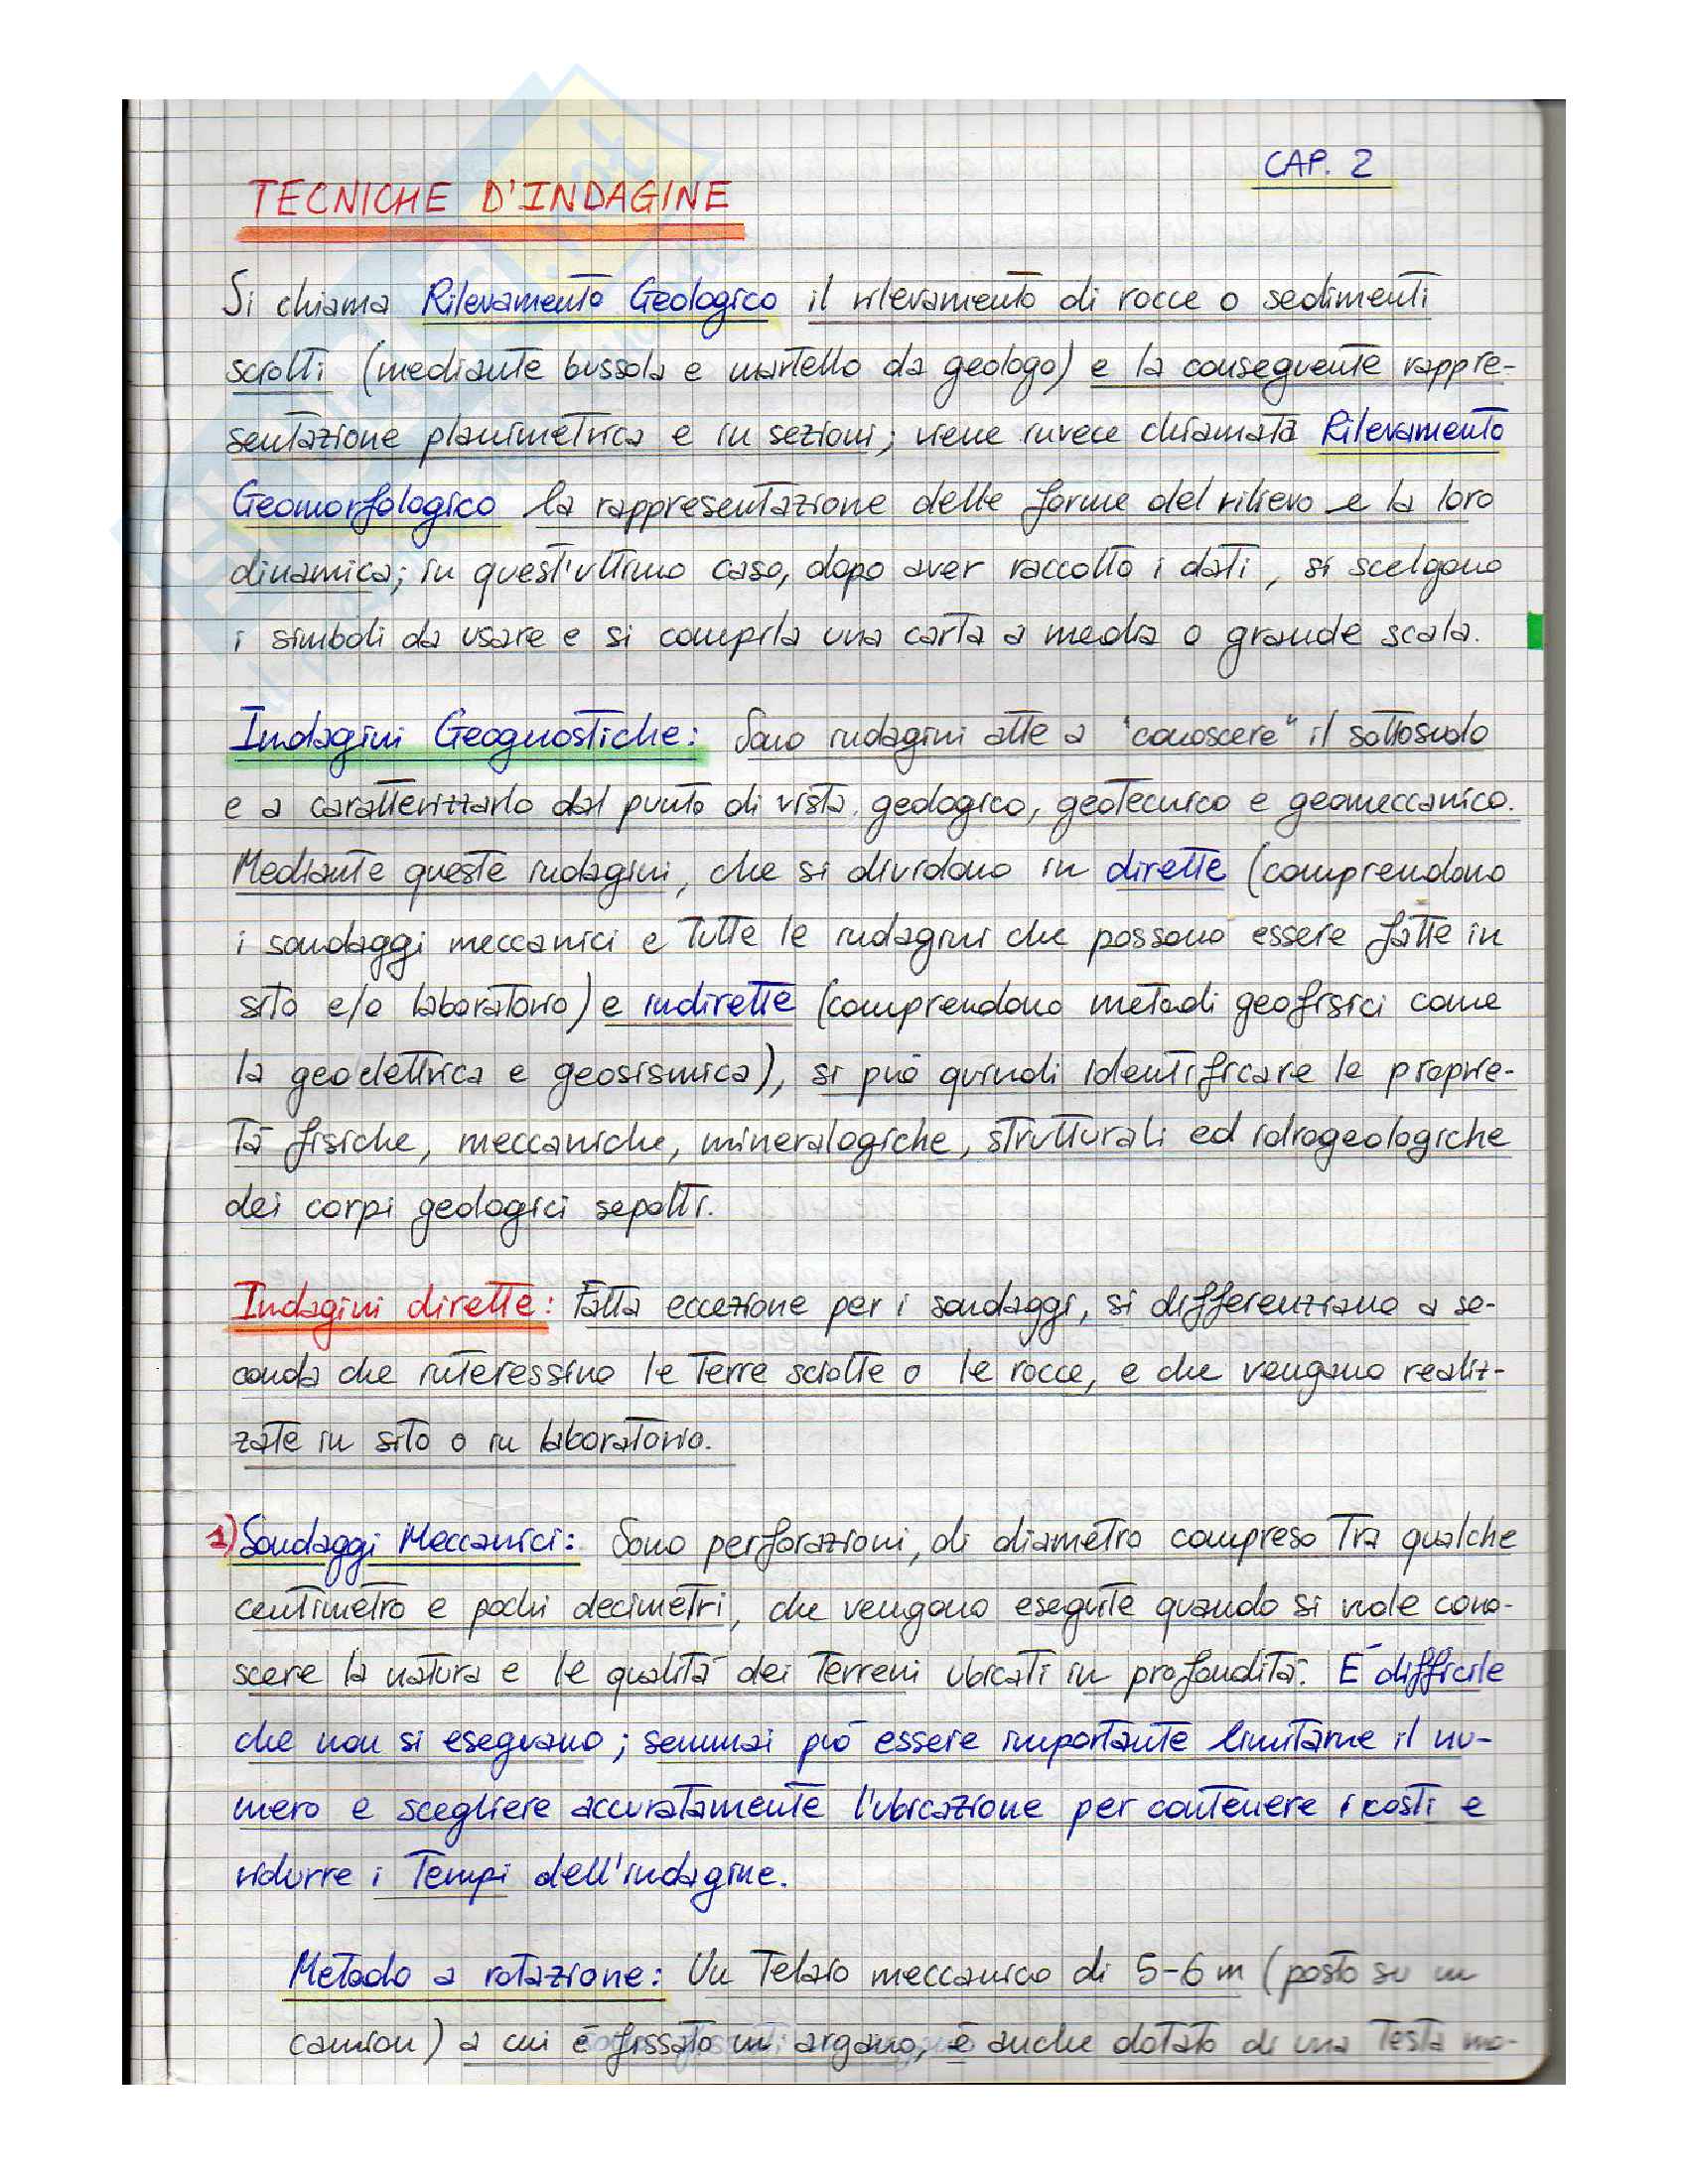 CAP. 2
TECNICHE D'INDAGINE
Si chiama Rilevamento Geologico il rilevamento di rocce o sedimenti
sciolti (mediante bussola e martello da geologo) e la conseguente rappre-
sentazione planimetrica e in sezioni; viene invece chiamata Rilevamento
Geomorfologico la rappresentazione delle forme del rilievo e la loro
dinamica; in quest'ultimo caso, dopo aver raccolto i dati, si scelgono
i simboli da usare e si compila una carta a media o grande scala.
Indagini Geognostiche: Sono indagini atte a "conoscere" il sottosuolo
e a caratterizzarlo dal punto di vista geologico, geotecnico e geomeccanico.
Mediante queste indagini, che si dividono in dirette (comprendono
i sondaggi meccanici e tutte le indagini che possono essere fatte in
sito e/o laboratorio) e indirette (comprendono metodi geofisici come
la geoelettrica e geosismica), si può quindi identificare le proprie-
tà fisiche, meccaniche, mineralogiche, strutturali ed idrogeologiche
dei corpi geologici sepolti.
Indagini dirette: Fatta eccezione per i sondaggi, si differenziano a se-
conda che interessino le terre sciolte o le rocce, e che vengano realiz-
zate in sito o in laboratorio.
1) Sondaggi Meccanici: Sono perforazioni, di diametro compreso tra qualche
centimetro e pochi decimetri, che vengono eseguite quando si vuole cono-
scere la natura e le qualità dei terreni ubicati in profondità. È difficile
che non si eseguano; semmai può essere importante limitarne il nu-
mero e scegliere accuratamente l'ubicazione per contenere i costi e
ridurre i tempi dell'indagine.
Metodo a rotazione: Un telaio meccanico di 5-6 m (posto su un
camion) a cui è fissato un argano, è anche dotato di una testa mo-